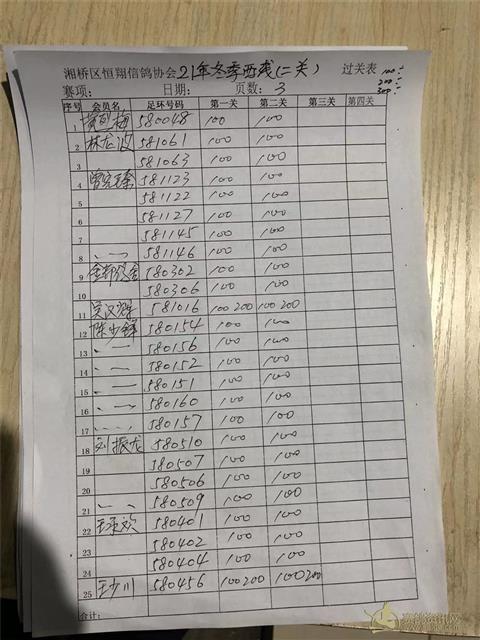 湘桥区恒翔信鸽协会21年冬季西线(二关) 过关表 100÷
200÷
赛项: 日期: 页数: 3 300÷
序号 会员名 足环号码 第一关 第二关 第三关 第四关
1 580048 100 100
2 林龙波 581061 100 100
3 581063 100 100
4 581123 100 100
5 581122 100 100
6 581127 100 100
7 581145 100 100
8 581146 100 100
9 580302 100 100
10 580306 100 100
11 吴汉 581016 100 200 100 200
12 陈少 580154 100 100
13 580156 100 100
14 580152 100 100
15 580151 100 100
16 580160 100 100
17 580157 100 100
18 刘振龙 580510 100 100
19 580507 100 100
20 580506 100 100
21 580509 100 100
22 王 欢 580401 100 100
23 580402 100 100
24 580404 100 100
25 王少川 580456 100 200 100 200
合计: